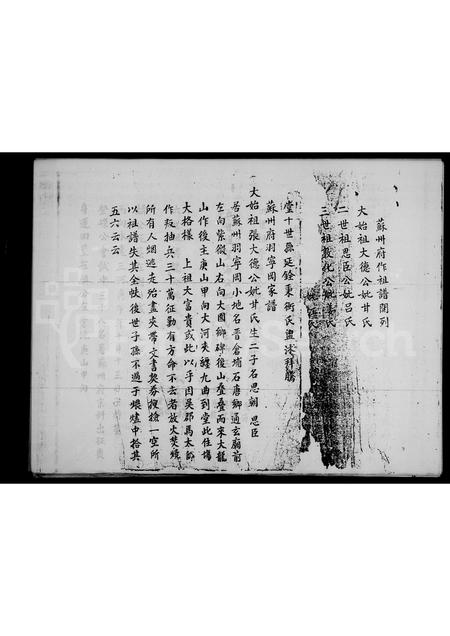 蘇州府作祖譜開列
大始祖大德公妣甘氏
二世祖思臣公妣呂氏
三世祖教化公妣姜氏
堂十世縣延銓東街氏盥沐拜騰
蘇州府羽寧岡家譜
大始祖張大德公妣甘氏生二子名思朝 思臣
居蘇州羽寧岡小地名晋倉埔石唐鄉通玄廟前
左向紫微山右向大圓獅碑後山叠叠而來大龍
山作後主庚山甲向大河夾纏九曲到堂此住塲
大格樣 上祖大富貴或此以乎因吳郡馬太師
作叛抽兵三十萬征勦有方命不去者放火焚燒
所有人烟逃走殆盡夾帶文書契券搜撿一空所
以祖譜失其全帙後世子孫不過于煨爐中拾其
五六云云